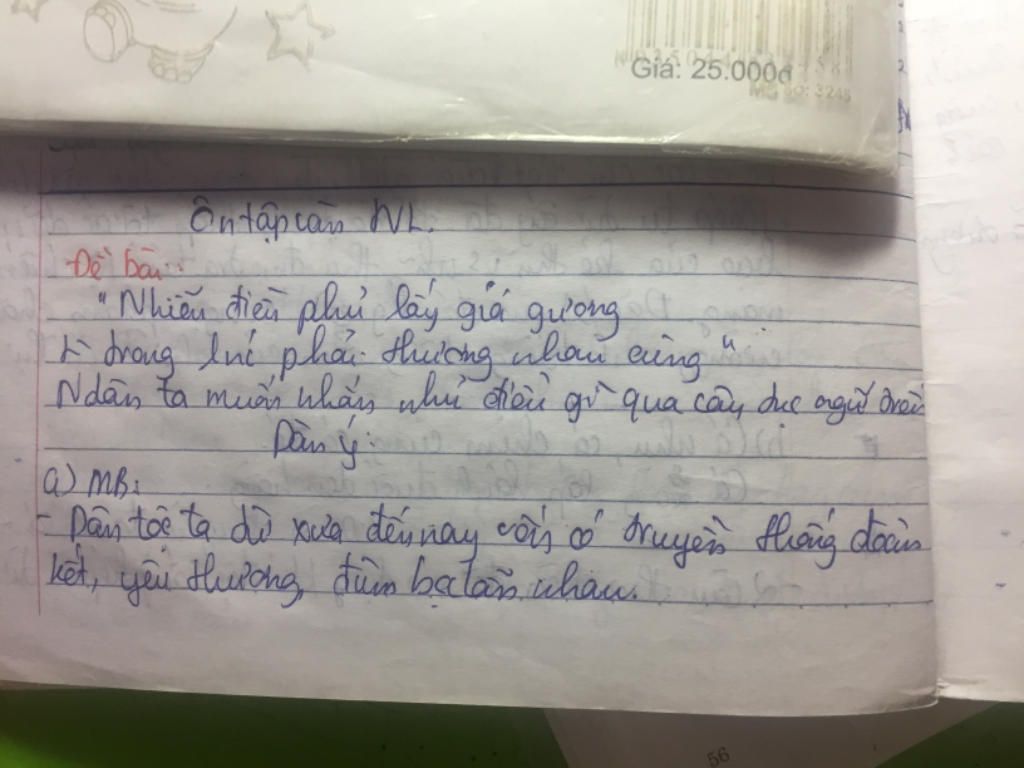 Giá: 25.000đ
Mã số: 3245
Ôn tập văn NL.
Đề bài:
"Nhiễu điều phủ lấy giá gương
Ng trong 1 nước phải thương nhau cùng"
Ndân ta muốn nhắn nhủ điều gì qua câu tục ngữ trên
Dàn ý:
a) MB:
- Dân tộc ta từ xưa đến nay vốn có truyền thống đoàn
kết, yêu thương, đùm bọc lẫn nhau.
56